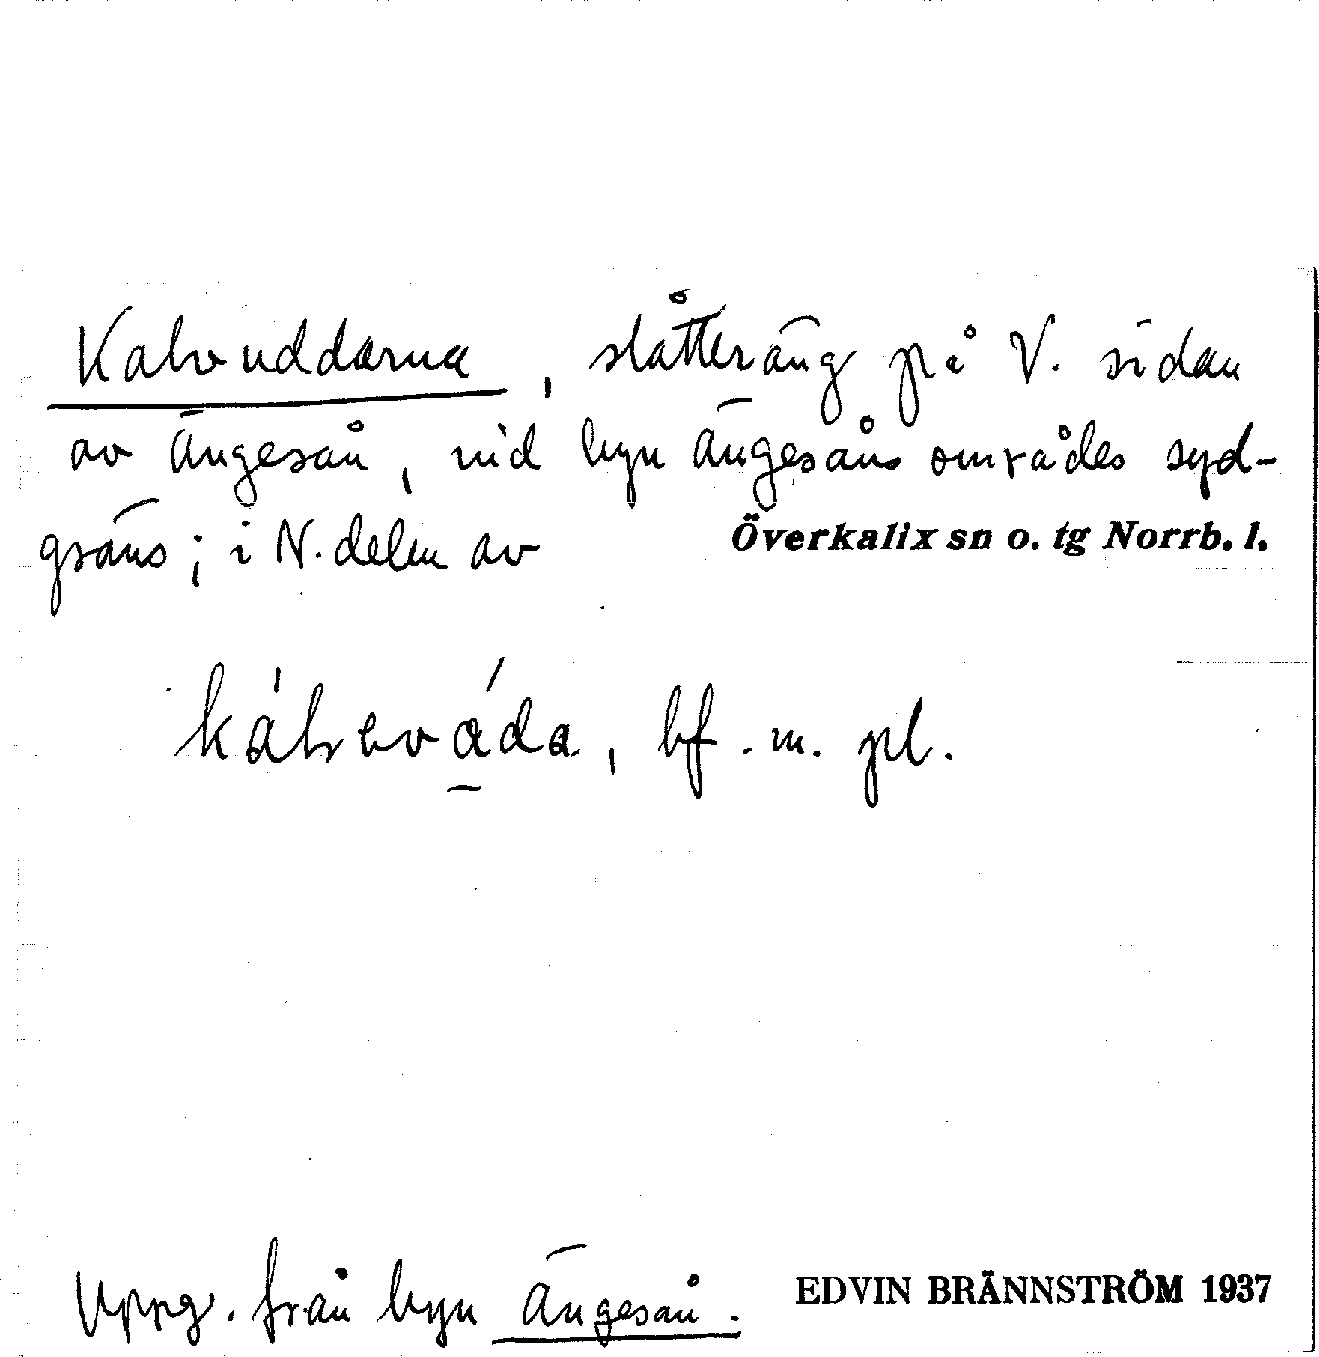 Kalvuddarna, slåtteräng på V. sidan
av Ängesån, vid byn Ängesåns områdes syd-
gräns; i N. delen av Överkalix sn o. tg Norrb. l.
bf. m. pl.
Uppg. från byn Ängesån. EDVIN BRÄNNSTRÖM 1937